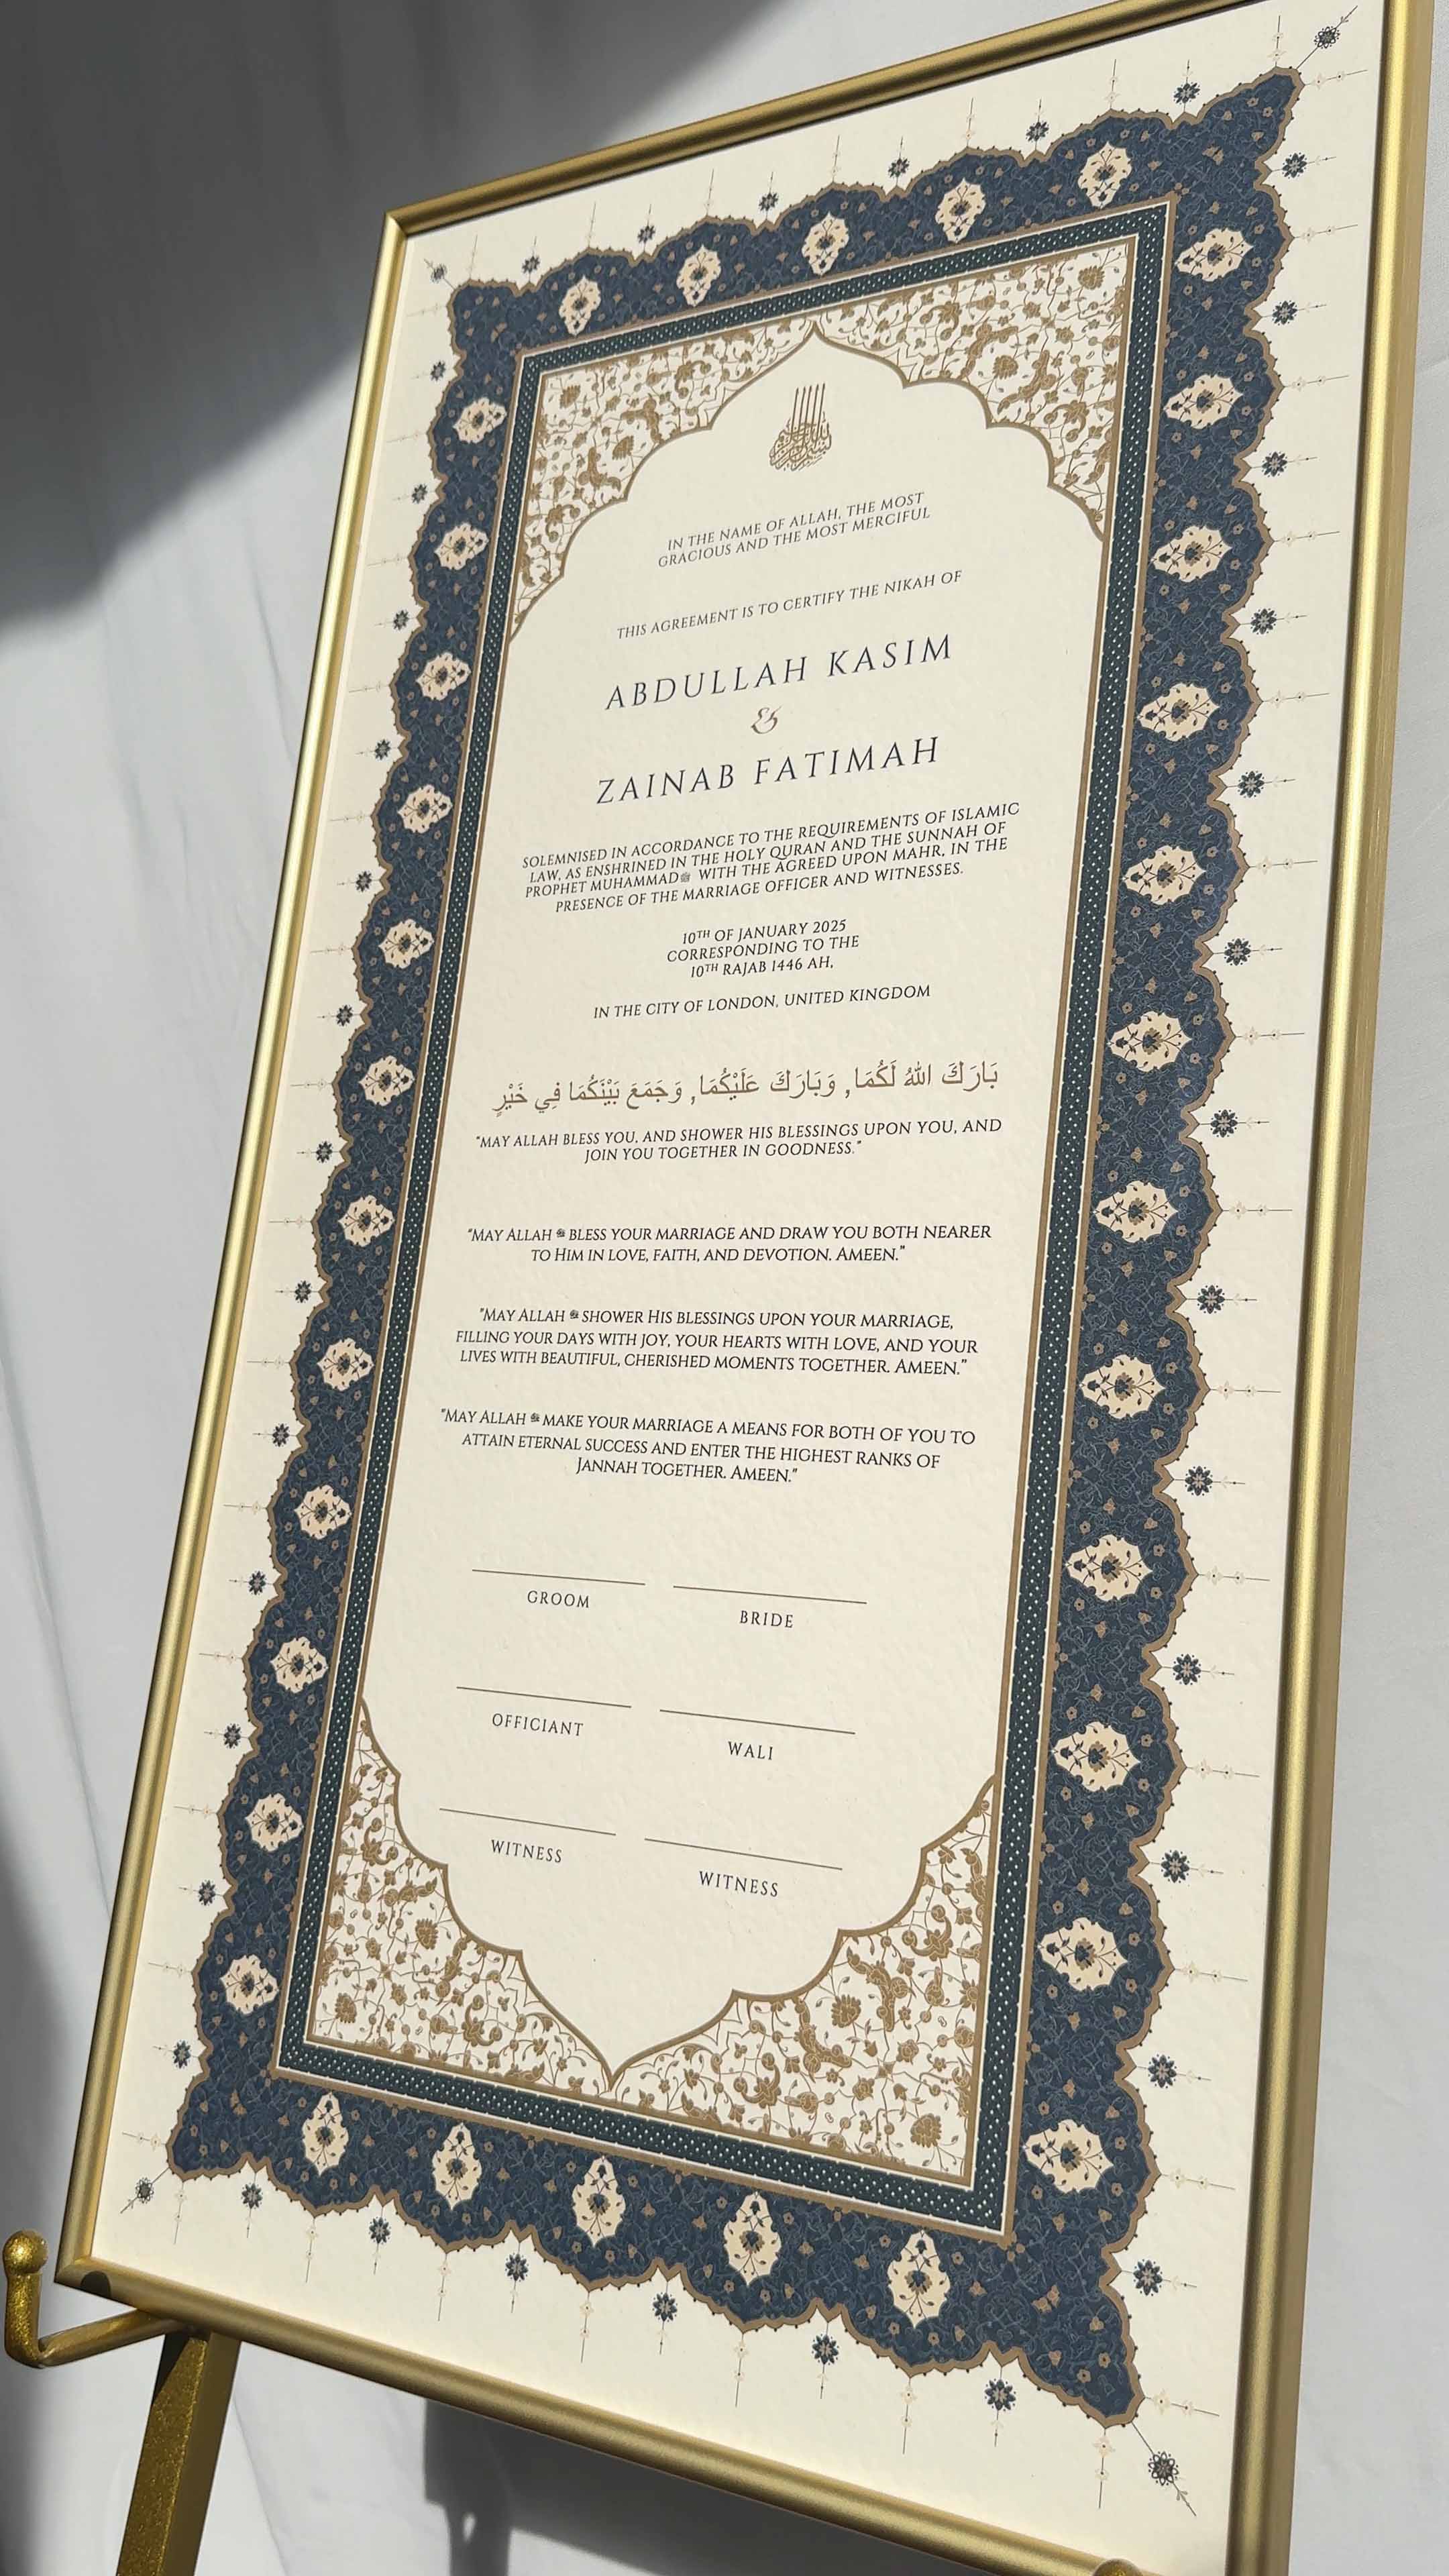 بسم الله الرحمن الرحيم
IN THE NAME OF ALLAH, THE MOST
GRACIOUS AND THE MOST MERCIFUL
THIS AGREEMENT IS TO CERTIFY THE NIKAH OF
ABDULLAH KASIM
&
ZAINAB FATIMAH
SOLEMNISED IN ACCORDANCE TO THE REQUIREMENTS OF ISLAMIC
LAW, AS ENSHRINED IN THE HOLY QURAN AND THE SUNNAH OF
PROPHET MUHAMMADﷺ WITH THE AGREED UPON MAHR, IN THE
PRESENCE OF THE MARRIAGE OFFICER AND WITNESSES.
10TH OF JANUARY 2025
CORRESPONDING TO THE
10TH RAJAB 1446 AH,
IN THE CITY OF LONDON, UNITED KINGDOM
بَارَكَ اللهُ لَكُمَا, وَبَارَكَ عَلَيْكُمَا, وَجَمَعَ بَيْنَكُمَا فِي خَيْرٍ
"MAY ALLAH BLESS YOU, AND SHOWER HIS BLESSINGS UPON YOU, AND
JOIN YOU TOGETHER IN GOODNESS."
"MAY ALLAH BLESS YOUR MARRIAGE AND DRAW YOU BOTH NEARER
TO HIM IN LOVE, FAITH, AND DEVOTION. AMEEN."
"MAY ALLAH SHOWER HIS BLESSINGS UPON YOUR MARRIAGE,
FILLING YOUR DAYS WITH JOY, YOUR HEARTS WITH LOVE, AND YOUR
LIVES WITH BEAUTIFUL, CHERISHED MOMENTS TOGETHER. AMEEN."
"MAY ALLAH MAKE YOUR MARRIAGE A MEANS FOR BOTH OF YOU TO
ATTAIN ETERNAL SUCCESS AND ENTER THE HIGHEST RANKS OF
JANNAH TOGETHER. AMEEN."
GROOM
BRIDE
OFFICIANT
WALI
WITNESS
WITNESS